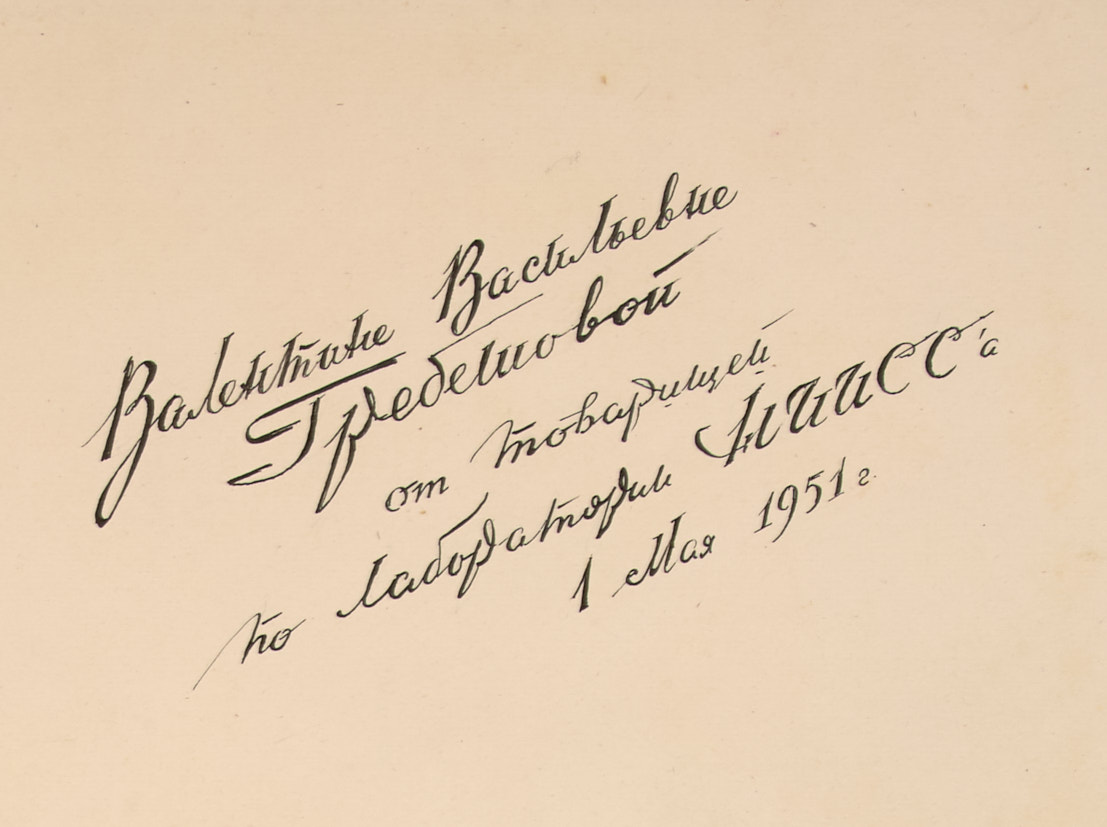 Валентине Васильевне
Гребешовой
от товарищей
по лаборатории НИИСС'а
1 Мая 1951 г.